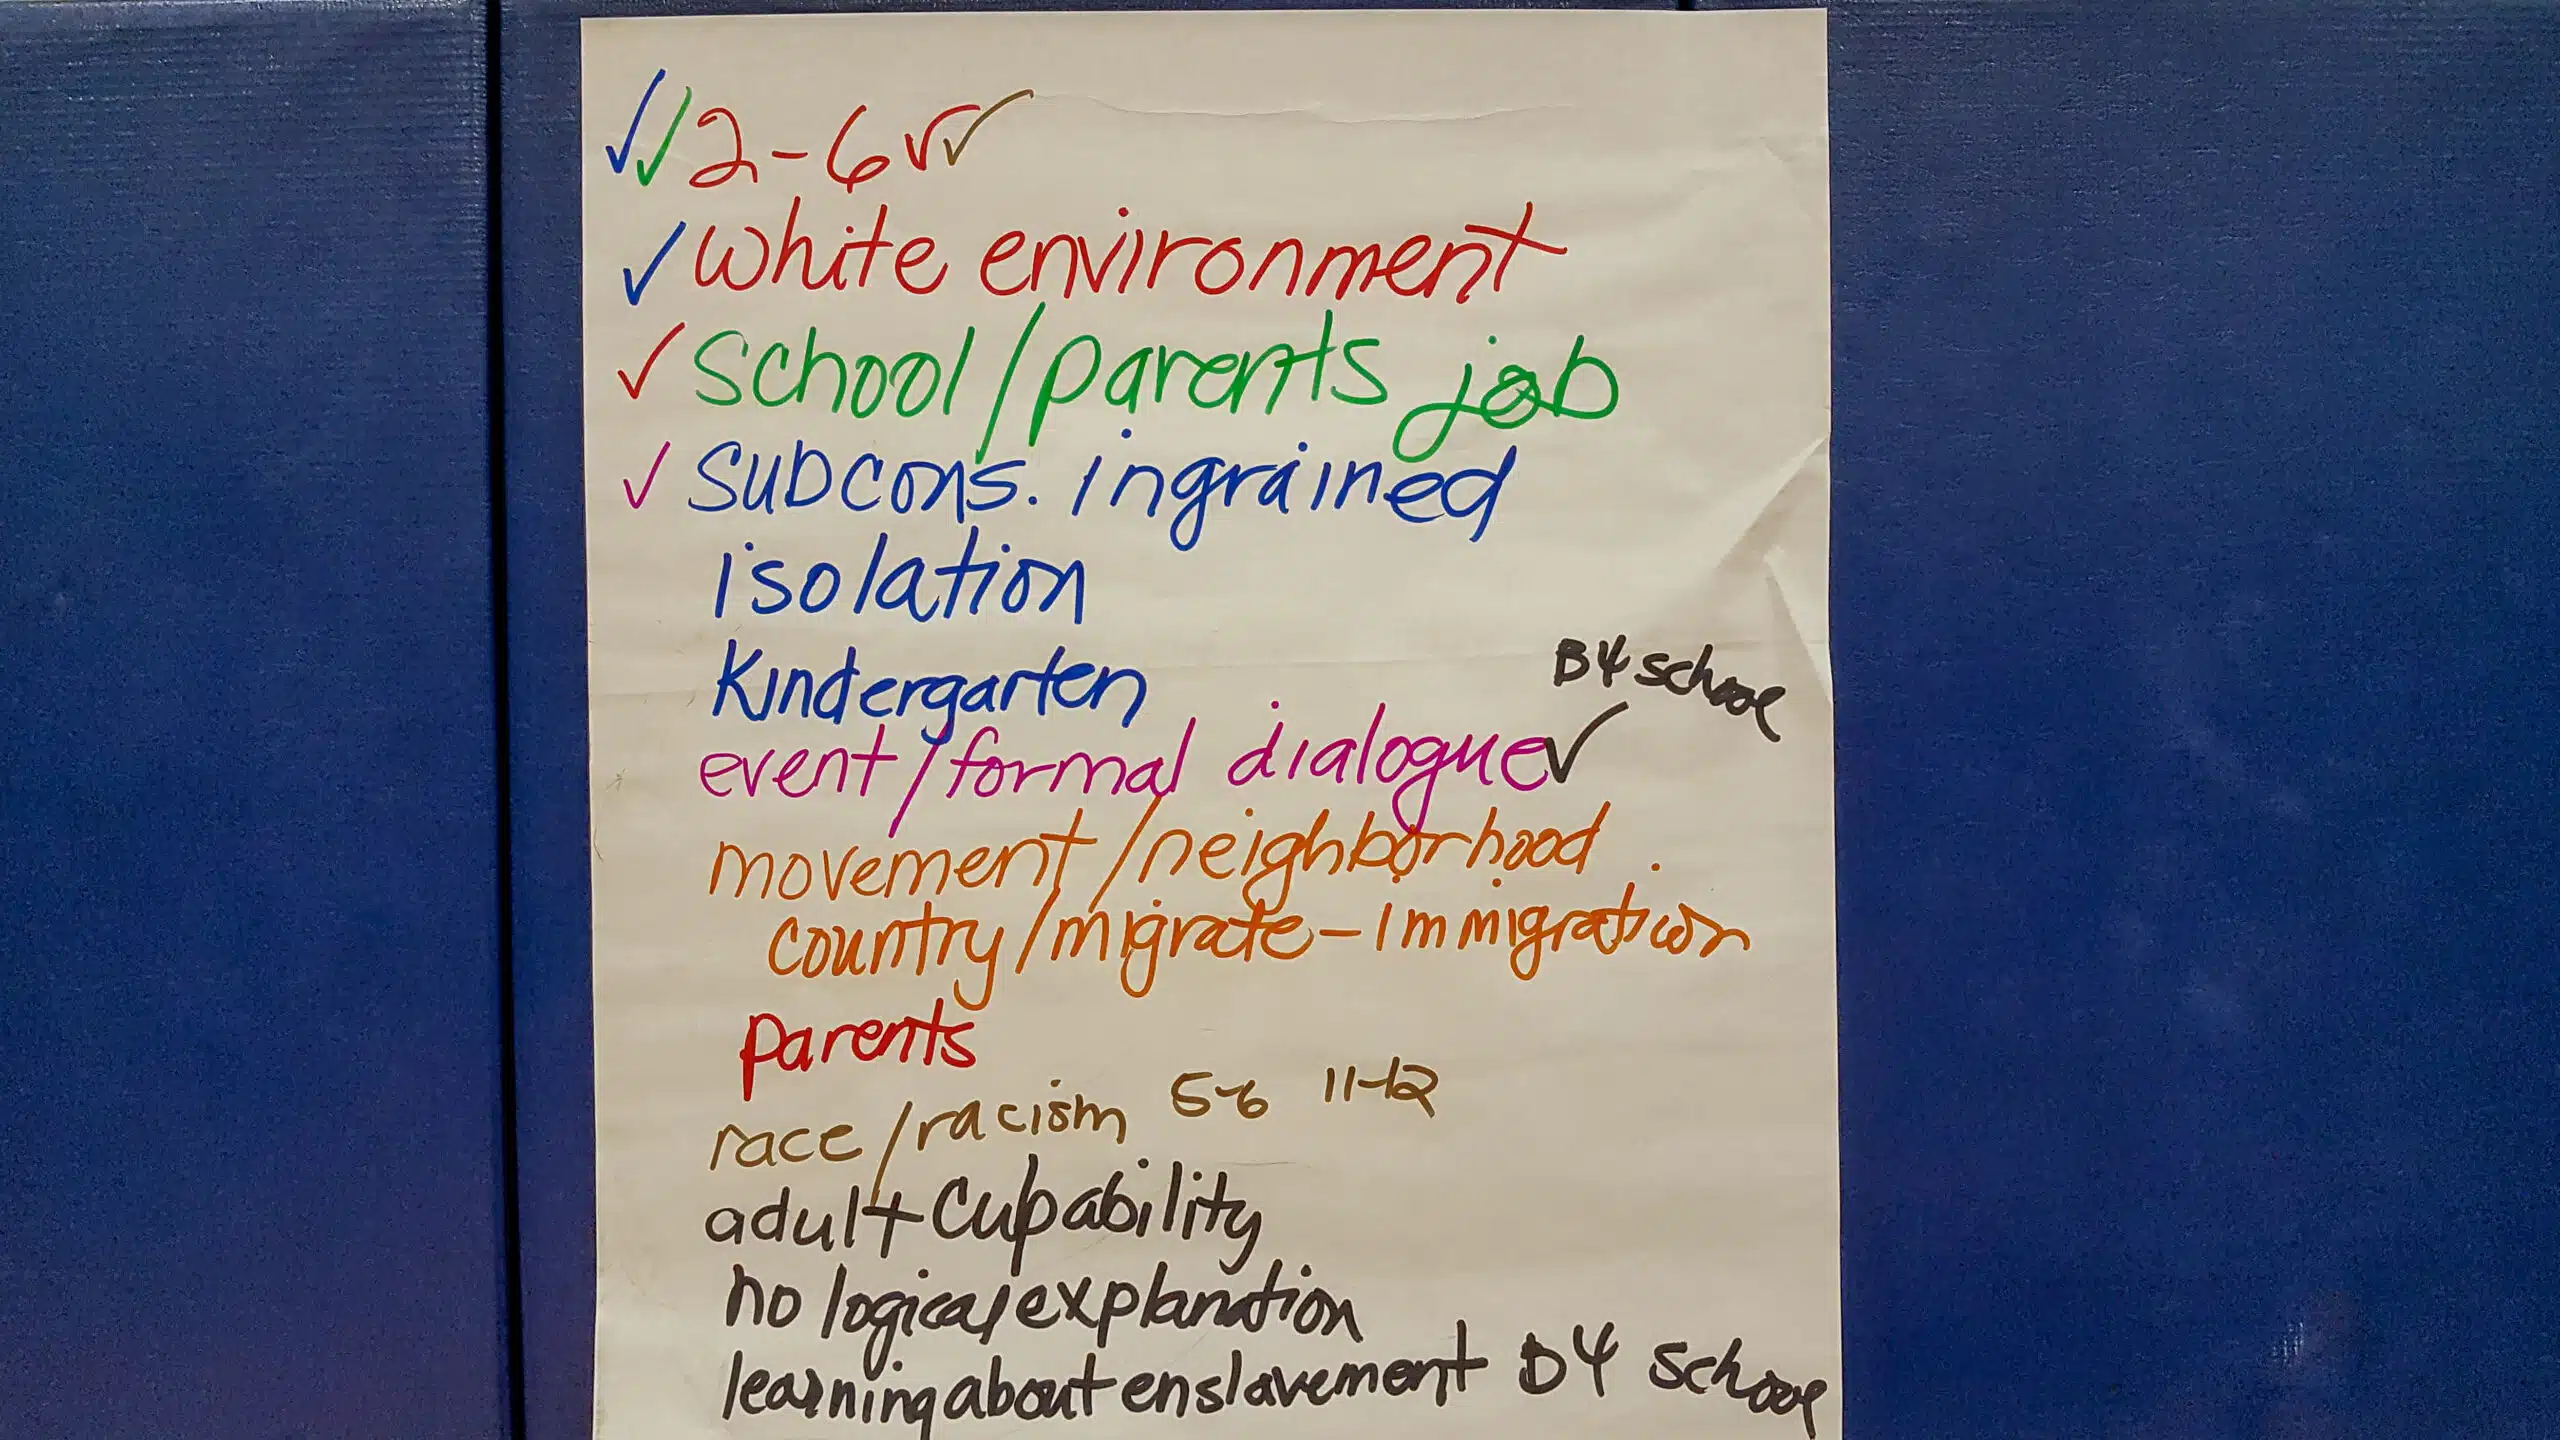 ✓✓ 2-6 ✓✓
✓ white environment
✓ school/parents job
✓ subcons. ingrained
isolation
Kindergarten
B4 school
event/formal dialogue ✓
movement/neighborhood
country/migrate-immigration
parents
race/racism 5-6 11-12
adult culpability
no logical explanation
learning about enslavement B4 school